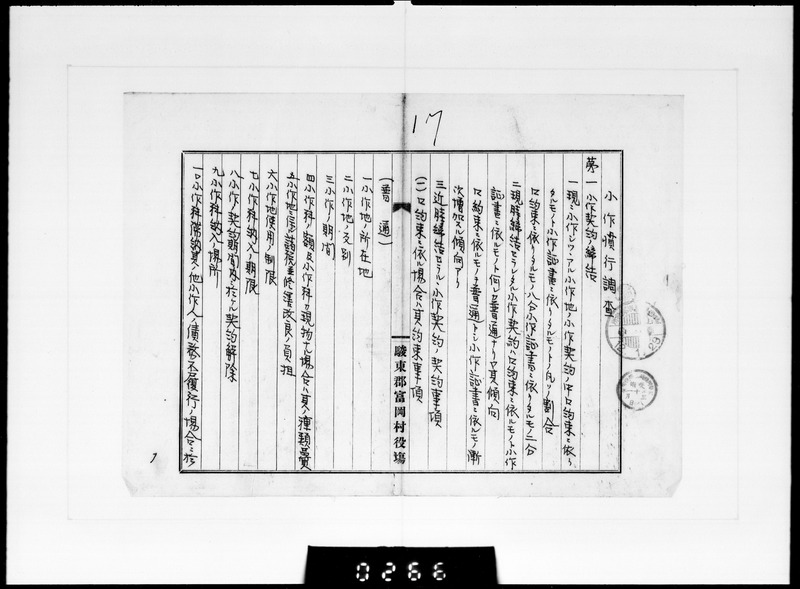 17
小作慣行調査
第一小作契約ノ締結
一現ニ小作シツヽアル小作地ノ小作契約ノ中口約束ニ依リ
タルモノト小作証書ニ依リタルモノトノ凡ソノ割合
口約束ニ依リタルモノ八分小作証書ニ依リタルモノ二分
二現時締結セラレタル小作契約ハ口約束ニ依ルモノト小作
証書ニ依ルモノト何レカ普通ナリヤ又其傾向
口約束ニ依ルモノヲ普通トシ小作証書ニ依ルモノ漸
次増加スル傾向アリ
三近時締結セラルヽ小作契約ノ契約事項
(一)口約束ニ依ル場合ハ其約束事項
駿東郡富岡村役場
(普通)
一小作地ノ所在地
二小作地ノ反別
三小作ノ期間
四小作料ノ額及小作料カ現物ナル場合ハ其ノ種類品質
五小作地ニ係ル諸税修繕改良ノ負担
六小作地使用ノ制限
七小作料納入ノ期限
八小作契約期間内ニ於ケル契約解除
九小作料納入ノ場所
一〇小作料滞納其ノ他小作人ノ債務不履行ノ場合ニ於
0266